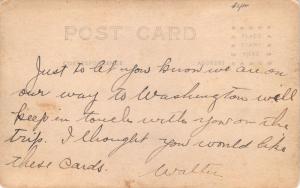 POST CARD
CORRESPONDENCE ADDRESS
PLACE
STAMP
HERE
Just to let you know we are on
our way to Washington will
keep in touch with you on the
trip. I thought you would like
these cards. Walter